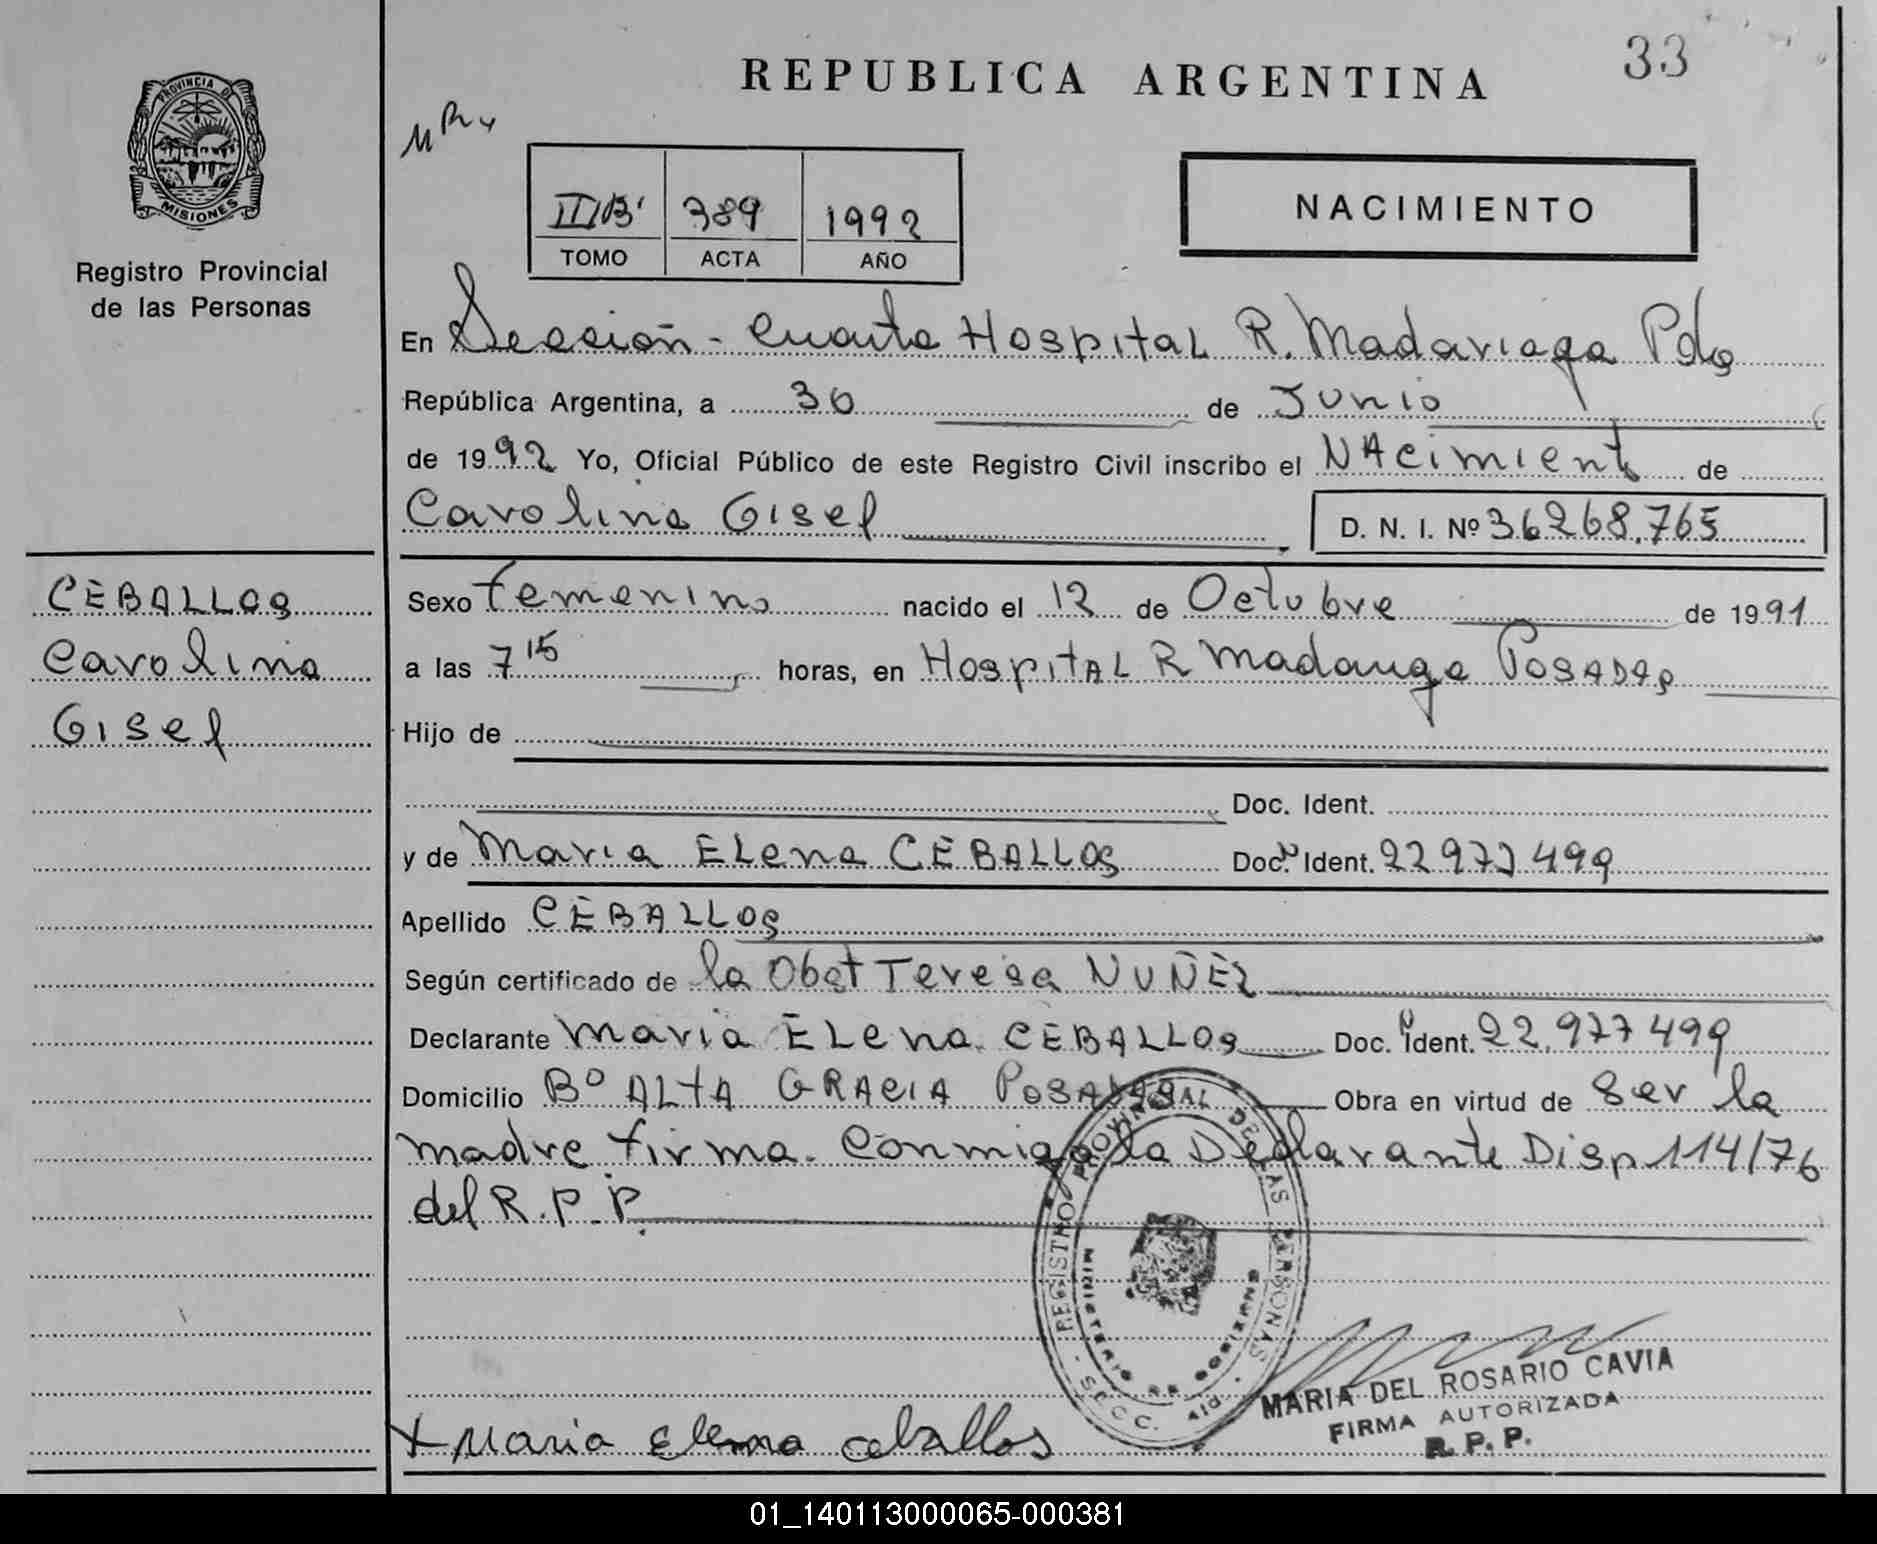 33
REPUBLICA ARGENTINA
PROVINCIA DE
MISIONES
Registro Provincial
de las Personas
III"B" 389 1992
TOMO ACTA AÑO
NACIMIENTO
En Sección - Cuarta Hospital R. Madariaga Pdas
República Argentina, a 30 de Junio
de 1992 Yo, Oficial Público de este Registro Civil inscribo el NAcimiento de
Carolina Gisel D. N. I. Nº 36268.765
CEBALLOS
Carolina
Gisel
Sexo femenino nacido el 12 de Octubre de 1991
a las 7 15 horas, en HospitAL R Madariaga POSADAS
Hijo de
Doc. Ident.
y de Maria ELena CEBALLOS Doc. Ident. 22977499
Apellido CEBALLOS
Según certificado de la Obst Teresa NUÑEZ
Declarante Maria ELena CEBALLOS Doc. Ident. 22.977499
Domicilio Bº ALTA GRACIA POSADAS Obra en virtud de Ser la
madre firma. Conmigo la Declarante Disp 114/76
del R.P.P.
REGISTRO PROVINCIAL DE LAS PERSONAS
MINISTERIO DE GOBIERNO
SECC.
MARIA DEL ROSARIO CAVIA
FIRMA AUTORIZADA
R. P. P.
x Maria Elena ceballos
01_140113000065-000381